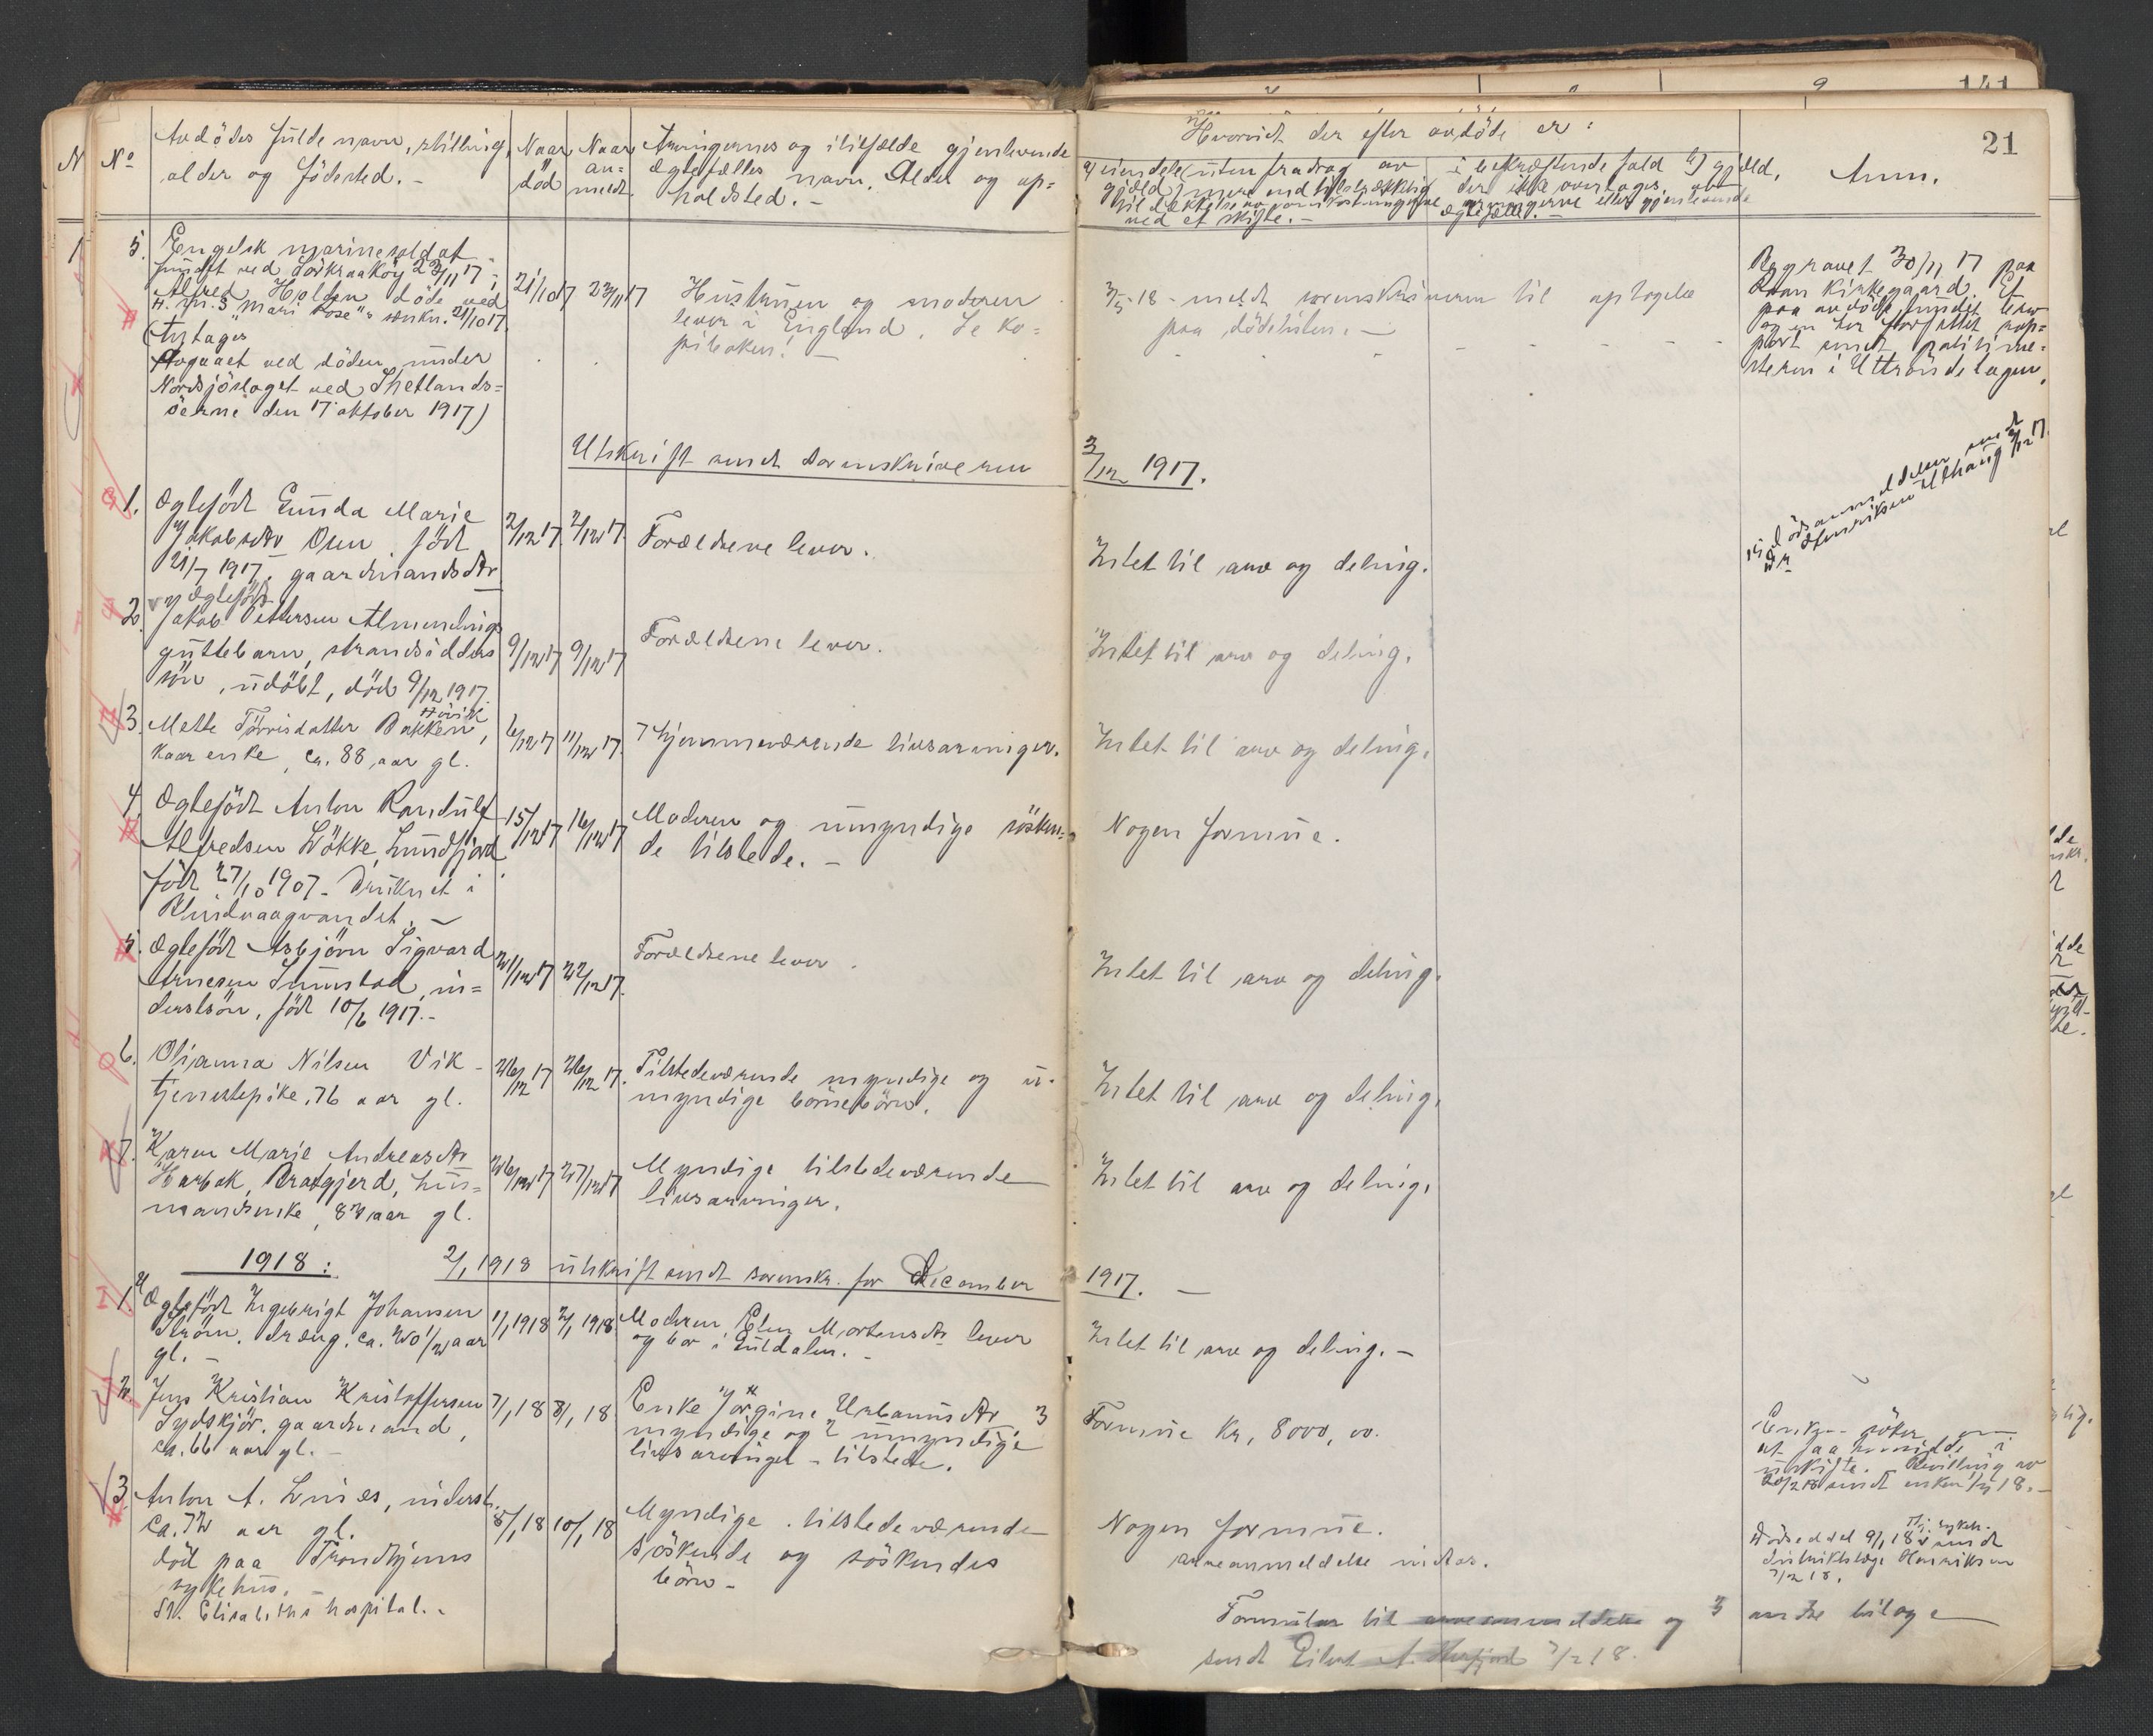 21
No
Avdödes fulde navn, stilling,
alder og födested. -
Naar
död
Naar
an=
meldt.
Arvingernes og i tilfælde gjenlevende
ægtefælles navn. Alder og op=
holdsted. -
Hvorvidt der efter avdöde er:
a) eiendele (uten fradrag av
gjæld) mere end tilstrækkelig
til dækkelse av omkostningerne
ved et skifte. -
i bekræftende fald b) gjæld,
der ikke overtages av
arvingerne eller gjenlevende
ægtefælle. -
Anm.
5. Engelsk marinesoldat
fundet ved 23/11 17,
Alfred Holten döde ved
H. M. S "Mari Rose"s sænkn. 21/10 17
(Antages
ved döden under
Nordsjöslaget ved Shetlands=
öerne den 17 oktober 1917)
21/10 17
23/11 17
Hustruen og moderen
lever i England. Se ko=
piboken! -
3/5-18 - meldt sorenskriveren til optagelse
paa dödslisten. -
Begravet 30/11 17 paa
Roan kirkegaard. Et
paa avdöde fundet brev
rap=
port sendt politime=
steren i Uttröndelagen.
Utskrift sendt sorenskriveren 3/12 1917.
dödsanmeldelser sendt
dr Henriksen Uthaug 3/12 17.
1. Ægtefödt Gunda Marie
Jakobsdtr Osen, födt
21/7 1917, gaardmandsdtr
2/12 17.
2/12 17.
Forældrene lever.
Intet til arv og deling.
2. Ægtefödt
Jakob Pettersen Almenning
guttebarn, strandsidders
sön, udöbt, död 9/12 1917.
9/12 17
9/12 17
Forældrene lever.
Intet til arv og deling.
3. Mette Törrisdatter Bakken, Hövik
kaarenke, ca. 88 aar gl.
6/12 17
11/12 17.
7 hjemmeværende livsarvinger.
Intet til arv og deling.
4. Ægtefödt Anton Randulf
Alfredsen Lökke, Sundfjord
födt 27/10 1907 - druknet i
15/12 17
16/12 17
Moderen og umyndige sösken=
de tilstede. -
Nogen formue.
5. Ægtefödt Asbjörn Sigvard
Arnesen Sumstad, in=
derstsön, födt 10/6 1917. -
21/12 17
22/12 17.
Forældrene lever.
Intet til arv og deling.
6. Olianna Nilsen Vik -
tjenestepike, 76 aar gl.
26/12 17
26/12 17.
Tilstedeværende myndige og u-
myndige börnebörn.
Intet til arv og deling.
7. Karen Marie Andreasdtr
Harbak, Bratgjerd, hus=
mandsenke, 82 aar gl.
26/12 17
27/12 17
Myndige tilstedeværende
livsarvinger.
Intet til arv og deling.
1918:
2/1 1918 utskrift sendt sorenskr. for December 1917. -
1. Ægtefödt Ingebrigt Johansen
Ström. dreng. ca. 20 1/2 aar
gl. -
1/1 1918
2/1 1918
Moderen Elen Mortensdtr lever
og bor i Guldalen. -
Intet til arv og deling. -
2. Jens Kristian Kristoffersen
Sydskjör, gaardmand,
ca. 66 aar gl. -
7/1 18
8/1 18
Enke Jörgine Urbanusdtr, 3
myndige og 2 umyndige
livsarvinger - tilstede.
Formue kr, 8000,00.
Enken söker om
at faa hensidde i
uskifte. Bevilling av
sendt enken 18. -
3. Anton A. inderst,
ca. 72 aar gl.
död paa Trondhjems
sykehus.
St. Elisabeths hospital. -
8/1 18
10/1 18
Myndige tilstedeværende
söskende og söskendes
börn -
Nogen formue.
arveanmeldelse
Dödseddel 9/1 18 sendt
distriktslæge Henriksen
7/2 18.
Formular til arveanmeldelse og 3 andre bilage
sendt Eilert A. 7/2 18.